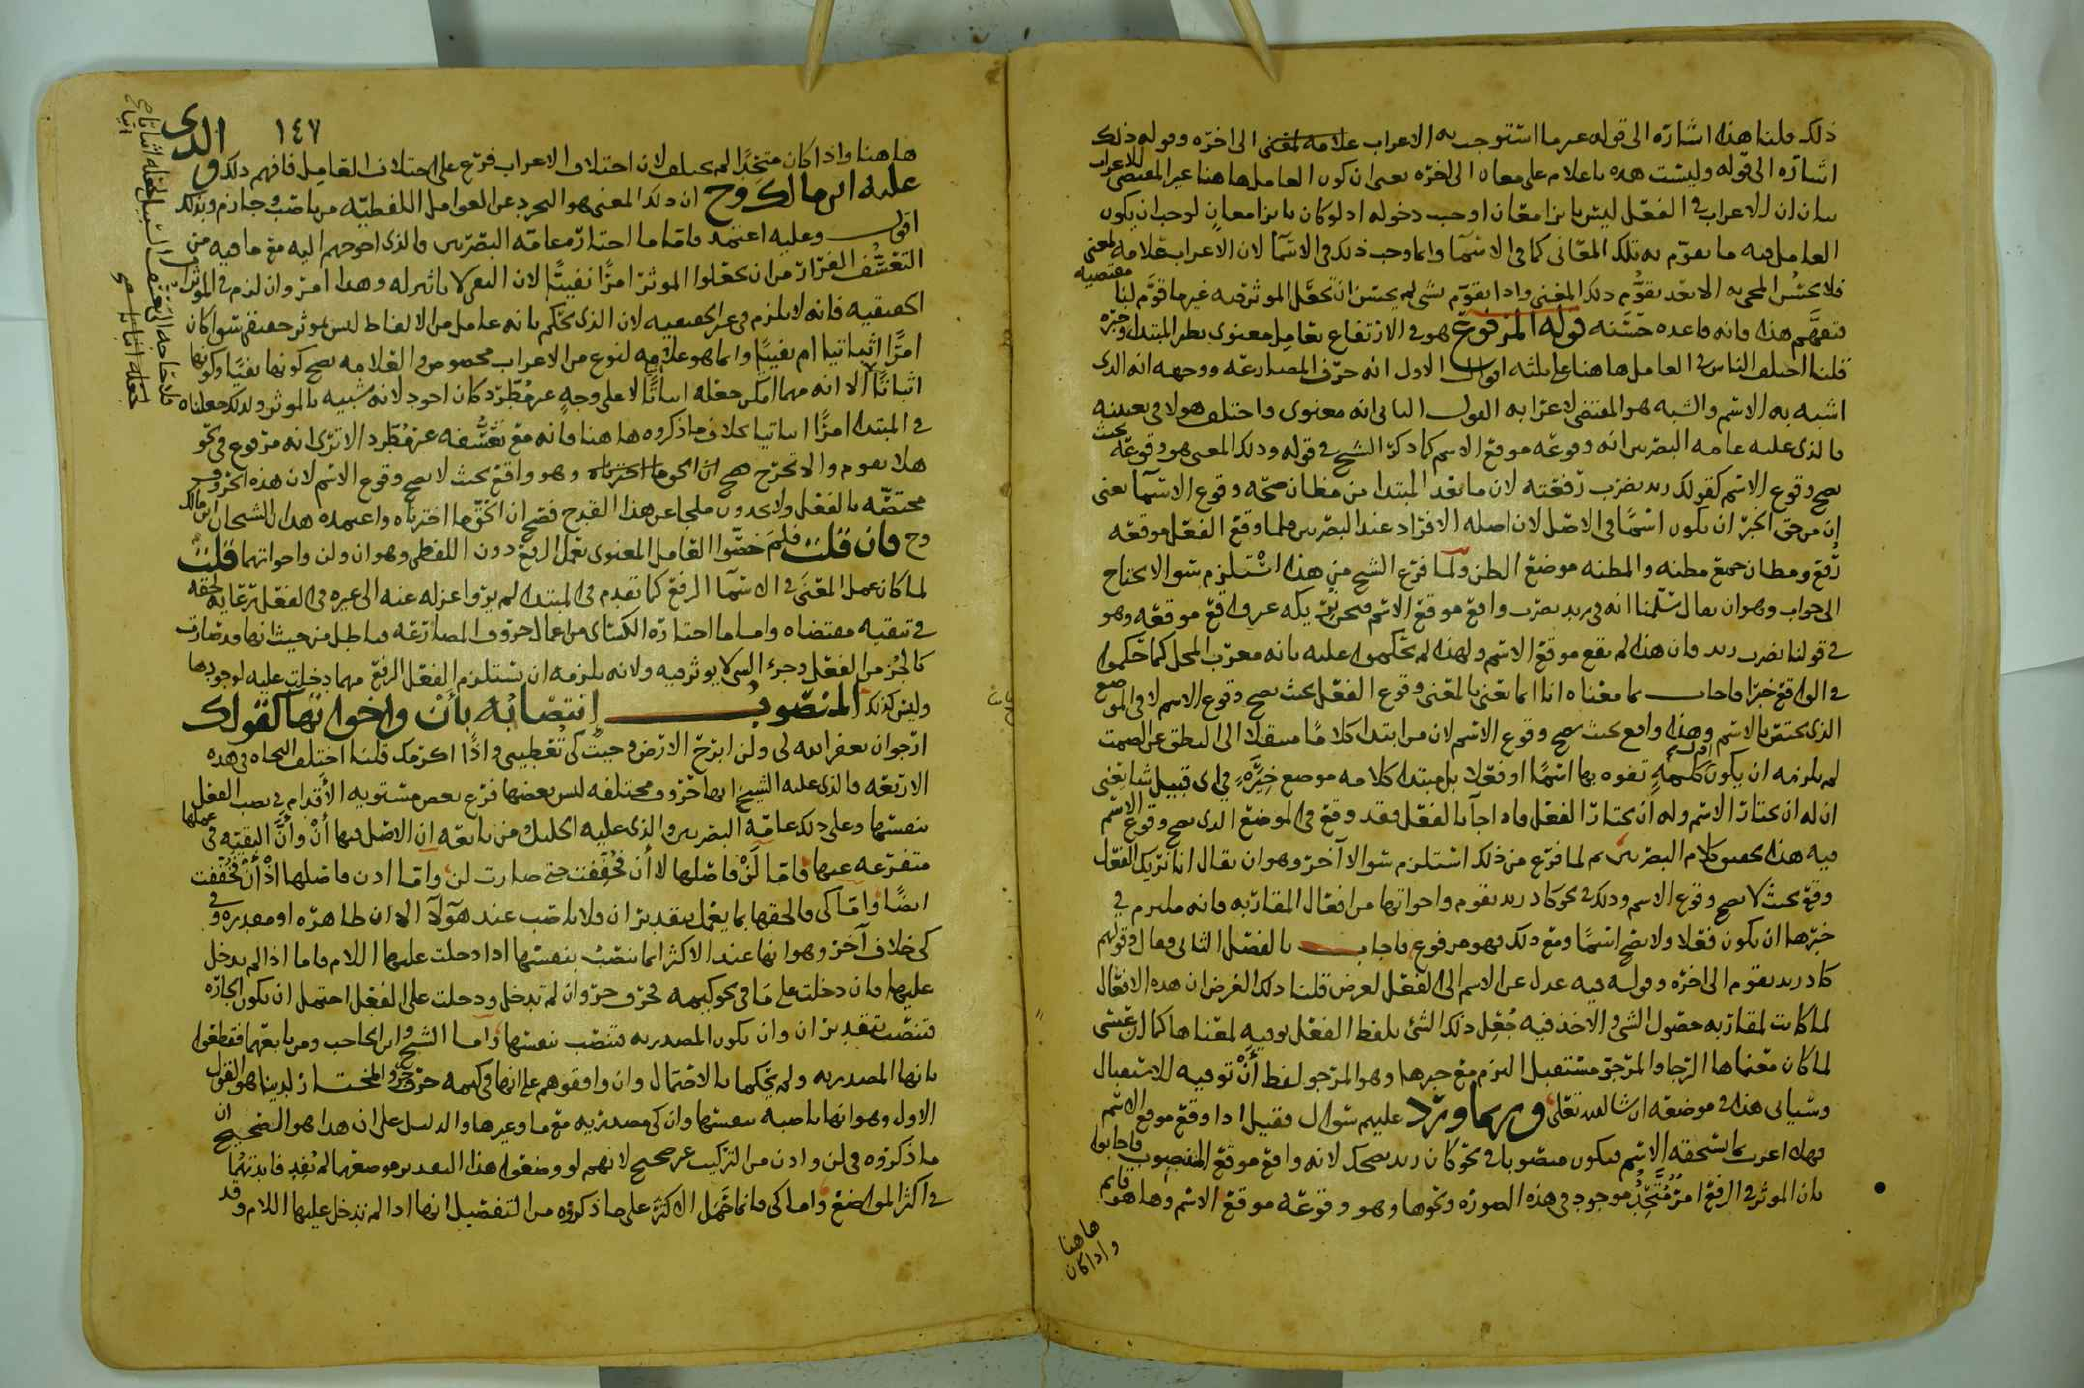 ذلك قلنا هذا اشارة الى قوله غير ما استوجب به الاعراب علامة لمعنى الى اخره وقوله ذلك
اشارة الى قوله وليست هذه باعلام على معان الى اخره يعنى ان كون العامل هاهنا غير المقتضى للاعراب
بيان ان الاعراب فى الفعل ليس بازا معان اوجب دخوله اذ لو كان بازا معان لوجب ان يكون
العامل فيه ما يقوم به تلك المعانى كما فى الاسما وانما وجب ذلك فى الاسما لان الاعراب علامة لمعنى
فلا يحسن المجى به الا بعد تقوم ذلك المعنى واذا تقوم بشى لم يحسن ان تجعل الموثر فيه غير ما قوم لنا مقتضيه
فتفهم هذا فانه قاعده حسنه قوله المرفوع هو فى الارتفاع بعامل معنوى نظير المبتدا وخبره
قلنا اختلف الناس فى العامل هاهنا على ثلثة اقوال الاول انه حرف المضارعه ووجهه انه الذى
اشبه به الاسم والشبه هو المقتضى لاعرابه القول الثانى انه معنوى واختلف هولا فى تعيينه
فالذى عليه عامه البصريين انه وقوعه موقع الاسم كما ذكره الشيخ فى قوله وذلك المعنى هو وقوعه بحيث
يصح وقوع الاسم كقولك زيد يضرب رفعته لان ما بعد المبتدا من مظان صحه وقوع الاسما يعنى
ان من حق الخبر ان يكون اسما فى الاصل لان اصله الافراد عند البصريين فلما وقع الفعل موقعه
رفع ومظان جمع مظنه والمظنه موضع الظن ولما فرغ الشيخ من هذا استلزم سوالا يحتاج
الى جواب وهو ان يقال سلمنا انه فى زيد يضرب واقع موقع الاسم
فى قولنا يضرب زيد فان هذا لم يقع موقع الاسم ولهذا لم تحكموا عليه بانه معرب المحل كما حكموا
فى الواقع خبرا فاجاب بما معناه انا انما نعنى بالمعنى وقوع الفعل بحيث يصح وقوع الاسم لا فى الموضع
الذى يختص بالاسم وهذا واقع بحيث يصح وقوع الاسم لان من ابتدا كلاما منتقلا الى النطق عن الصمت
لم يلزمه ان يكون اول كلمة تفوه بها اسما او فعلا بل مبتدا كلامه موضع خيرته فى اى قبيل شا يعنى
ان له ان يختار الاسم وله ان يختار الفعل فاذا جآ بالفعل فقد وقع فى الموضع الذى يصح وقوع الاسم
فيه هذا تحقيق كلام البصريين ثم لما فرغ من ذلك استلزم سوالا آخر وهو ان يقال انا نريك الفعل
وقع بحيث لا يصح وقوع الاسم وذلك فى نحو كاد زيد يقوم واخواتها من افعال المقاربه فانه ملتزم فى
خبرها ان يكون فعلا ولا يصح اسما ومع ذلك فهو مرفوع فاجاب بالفصل الثانى فقال وقولهم
كاد زيد يقوم الى اخره وقوله فيه عدل عن الاسم الى الفعل لغرض قلنا ذلك الغرض ان هذه الافعال
لما كانت لمقاربه حصول الشى والاخذ فيه جعل ذلك الشئ بلفظ الفعل توفيه لمعناها كما ان عسى
لما كان معناها الرجا والمرجو مستقبل التزم مع خبرها وهو المرجو لفظ أن توفيه للاستقبال
وسياتى هذا فى موضعه ان شا الله تعلى وربما ورد عليهم سوال فقيل اذا وقع موقع الاسم
فهلا اعرب بما يستحقه الاسم فيكون منصوبا فى نحو كان زيد يضحك لانه واقع موقع المنصوب فاجابوا
بان الموثر فى الرفع امر متحد موجود فى هذه الصوره ونحوها وهو وقوعه موقع الاسم وها هو قايم
هاهنا
واذا كان
١٤٧
هاهنا واذا كان متحدا لم يختلف لان اختلاف الاعراب فرع على اختلاف العامل فافهم ذلك والذى
عليه ابن مالك وح ان ذلك المعنى هو التجرد عن العوامل اللفظيه من ناصب وجازم وبذلك
اقول وعليه اعتمد فاما ما اختاره عامه البصريين فالذى احوجهم اليه مع ما فيه من
التعسف الفرار من ان يجعلوا الموثر امرا نفييا لان النفى لا تاثير له وهذا امر وان لزم فى الموثرات
الحقيقيه فانه لا يلزم فى غير الحقيقيه لان الذى تحكم بانه عامل من الالفاظ ليس بموثر حقيقى سوا كان
امرا اثباتيا ام نفييا وانما هو علامه لنوع من الاعراب مخصوص والعلامه يصح كونها نفيا وكونها
اثباتا الا انه مهما امكن جعله اثباتا لا على وجه غير مطرد كان اجود لانه شبيه بالموثر ولذلك جعلناه
فى المبتدا امرا اثباتيا بخلاف ما ذكروه هاهنا فانه مع تعسفه غير مطرد الا ترى انه مرفوع فى نحو
هلا يقوم والا تخرج وهو واقع بحيث لا يصح وقوع الاسم لان هذه الحروف
مختصه بالفعل ولا يجدون ملجا عن هذا القدح فصح ان الحق ما اخترناه واعتمده هذان الشيخان ابن مالك
وح فان قلت فلم خصوا العامل المعنوى بعمل الرفع دون اللفظى وهو ان ولن واخواتهما قلت
لما كان عمل المعنى فى الاسما الرفع كما تقدم فى المبتدا لم يروا عزله عنه الى غيره فى الفعل رعاية لحقه
فى تبقيه مقتضاه واما ما اختاره الكسائى من اعمال حروف المضارعه فباطل من حيث انها قد صارت
كالجز من الفعل وجزء الشى لا يوثر فيه ولانه يلزمه ان يستلزم الفعل الرفع مهما دخلت عليه لوجودها
وليس كذلك المنصوب إنتصابه بأن واخواتها كقولك
ارجو ان يغفر الله لى ولن ابرح الارض وجيت كى تعطينى واذا اكرمك قلنا اختلف النحاه فى هذه
الاربعه فالذى عليه الشيخ انها حروف مختلفه ليس بعضها فرع بعض مستويه الأقدام فى نصب الفعل
بنفسها وعلى ذلك عامه البصريين والذى عليه الخليل ومن تابعه ان الاصل فيها أن وأن البقيه فى عملها
متفرعه عنها فاما لن فاصلها لا أن فخففت حتى صارت لن واما اذن فاصلها اذ أن فخففت
ايضا واما كى فالحقها بما يعمل بتقدير ان فلا ناصب عند هؤلآ الا ان ظاهره او مقدره وفى
كى خلاف آخر وهو انها عند الاكثر انما تنصب بنفسها اذا دخلت عليها اللام فاما اذا لم يدخل
عليها فان دخلت على ما فى نحو كيمه فحرف جر وان لم تدخل ودخلت على الفعل احتمل ان تكون الجاره
فتنصب بتقدير ان وان تكون المصدريه فتنصب بنفسها واما الشيخ وابن الحاجب ومن تابعهما فقطعوا
بانها المصدريه ولم يحكما بالاحتمال وان وافقوهم على انها فى كيمه حرف جر والمختار لدينا هو القول
الاول وهو انها ناصبه بنفسها وان كى مصدريه مع ما وغيرها والدليل على ان هذا هو الصحيح ان
ما ذكروه فى لن واذن من التركيب غير صحيح لانهم لو وضعوا هذا التقدير موضعهما لم يفد فايدتهما
فى اكثر المواضع واما كى فانما حمل الاكثر على ما ذكروه من التفصيل انها اذا لم تدخل عليها اللام وقد